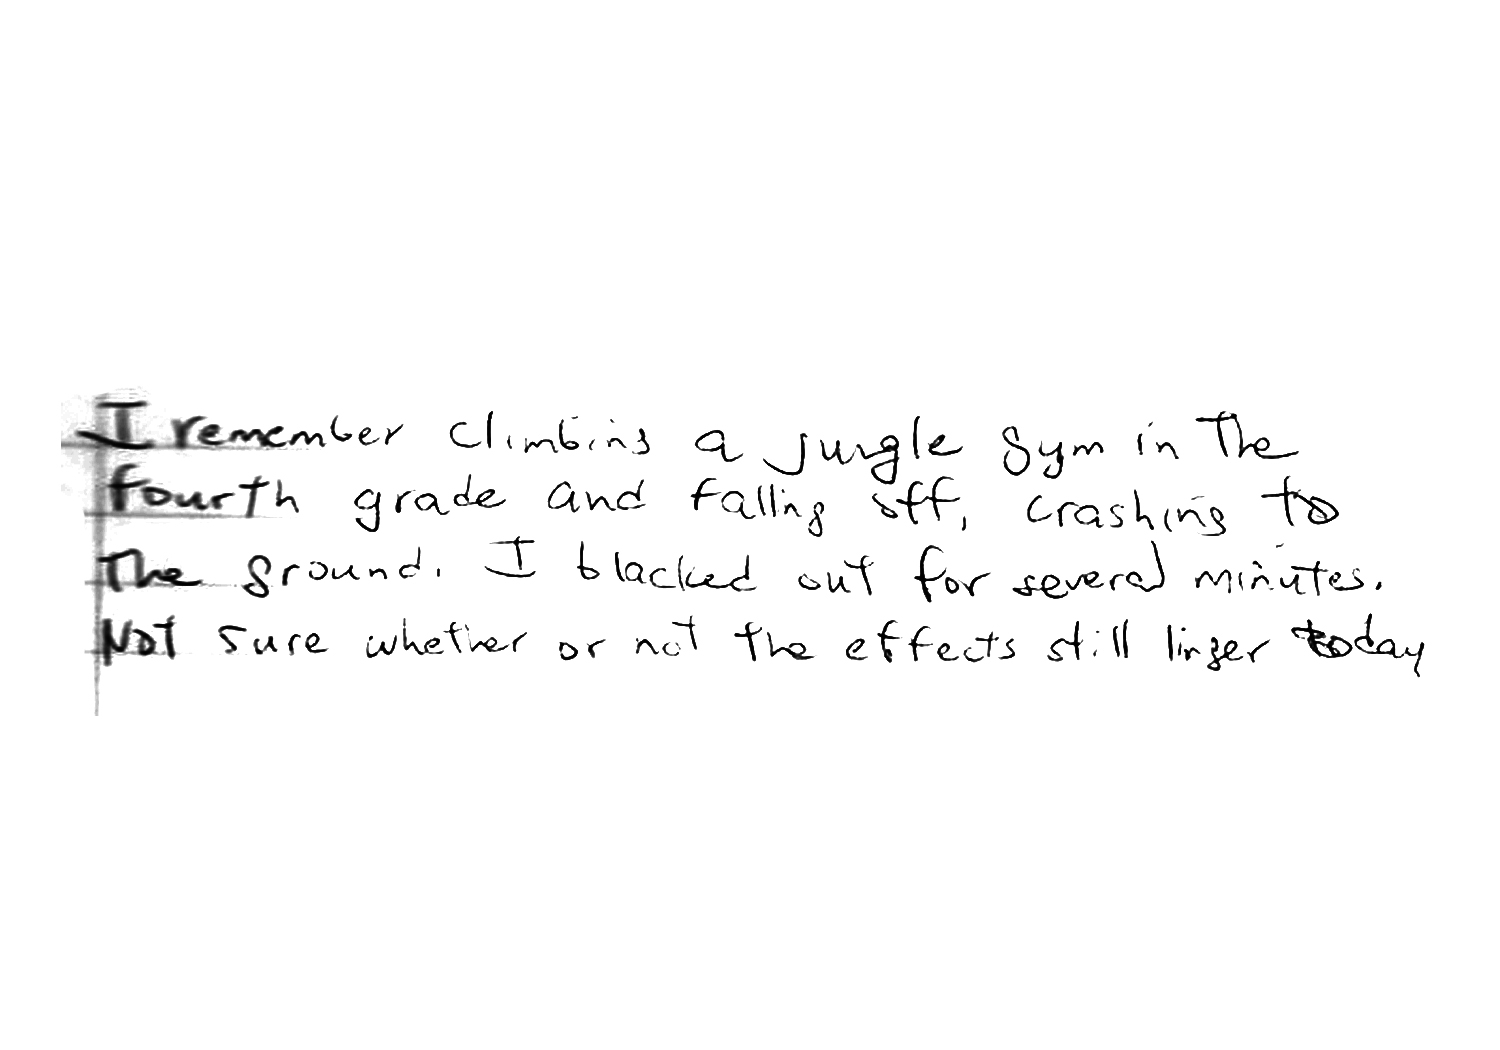 I remember climbing a jungle gym in the
fourth grade and falling off, crashing to
the ground. I blacked out for several minutes.
Not sure whether or not the effects still linger today